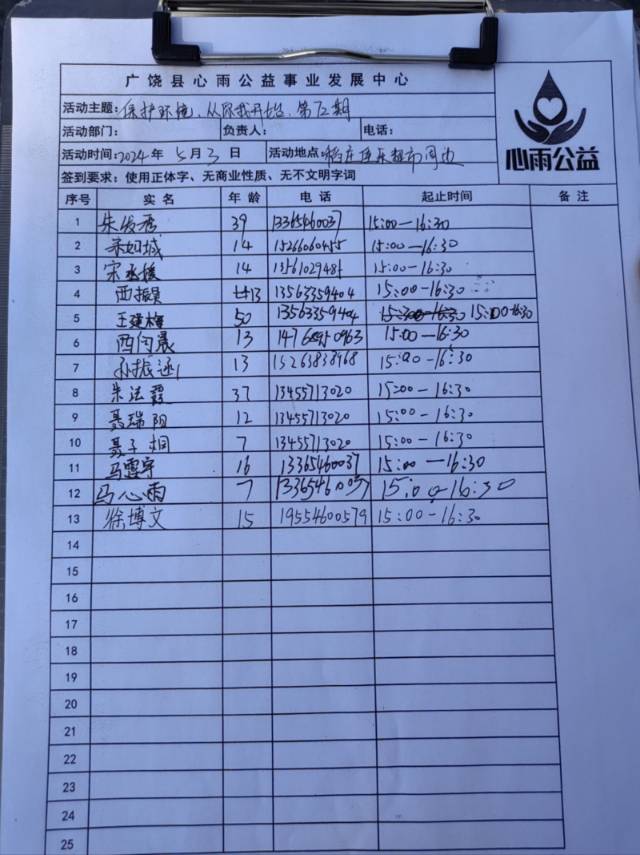 广饶县心雨公益事业发展中心
活动主题：保护环境，从你我开始，第 期
活动部门： 负责人： 电话：
活动时间：2024年5月3日 活动地点：稻庄佳乐超市周边
签到要求：使用正体字、无商业性质、无不文明字词
心雨公益
序号 实名 年龄 电话 起止时间 备注
1 朱 39 13365460037 15:00-16:30
2 14 15266060455 15:00-16:30
3 宋 14 15:00-16:30
4 西振 13 13563359404 15:00-16:30
5 王建梅 50 13563359404 15:00-16:30
6 西 晨 13 15:00-16:30
7 孙振 13 15263838968 15:00-16:30
8 朱法霞 37 13455713020 15:00-16:30
9 聂瑞阳 12 13455713020 15:00-16:30
10 聂子桐 7 13455713020 15:00-16:30
11 马雪宇 16 13365460037 15:00-16:30
12 马心雨 7 13365460037 15:00-16:30
13 徐博文 15 19554600579 15:00-16:30
14
15
16
17
18
19
20
21
22
23
24
25